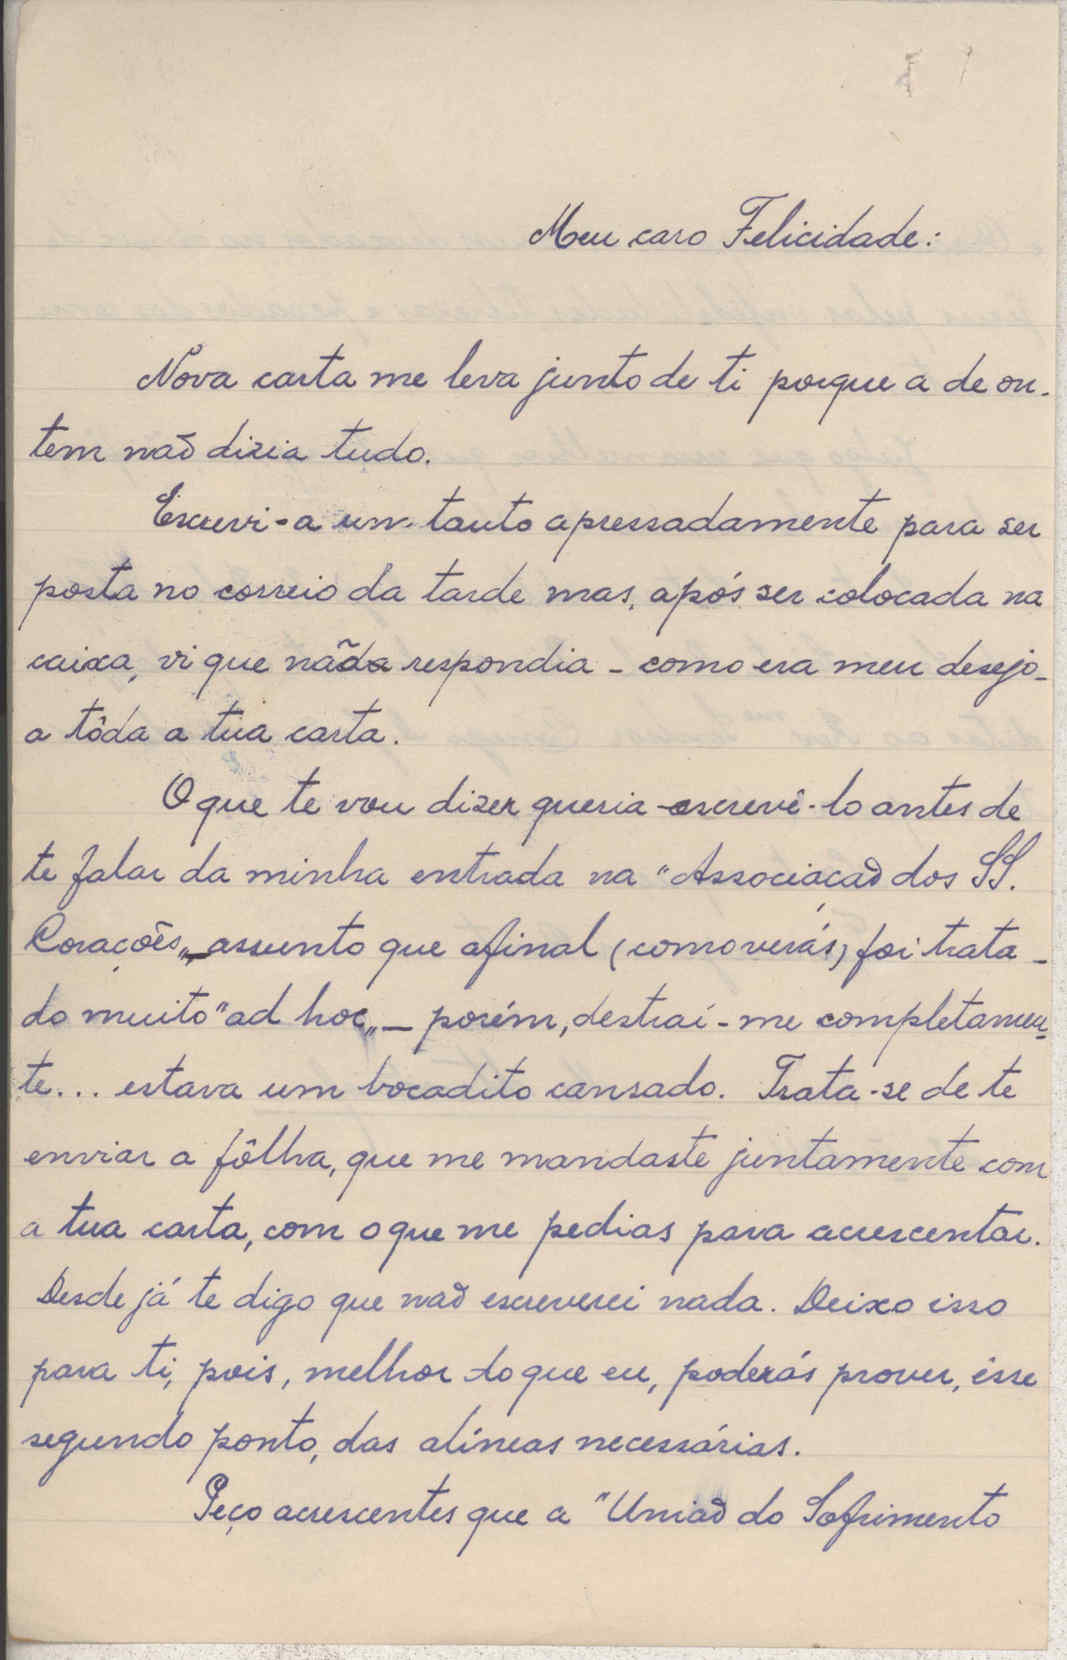 Meu caro Felicidade:
Nova carta me leva junto de ti porque a de on-
tem não dizia tudo.
Escrevi-a um tanto apressadamente para ser
posta no correio da tarde mas, após ser colocada na
caixa, vi que não respondia - como era meu desejo -
a tôda a tua carta.
O que te vou dizer queria escrevê-lo antes de
te falar da minha entrada na "Associação dos SS.
Corações" - assunto que afinal (como verás) foi trata-
do muito "ad hoc" - porém, destraí-me completamen-
te... estava um bocadito cansado. Trata-se de te
enviar a fôlha, que me mandaste juntamente com
a tua carta, com o que me pedias para acrescentar.
Desde já te digo que não escreverei nada. Deixo isso
para ti, pois, melhor do que eu, poderás prover, êsse
segundo ponto, das alíneas necessárias.
Peço acrescentes que a "União do Sofrimento